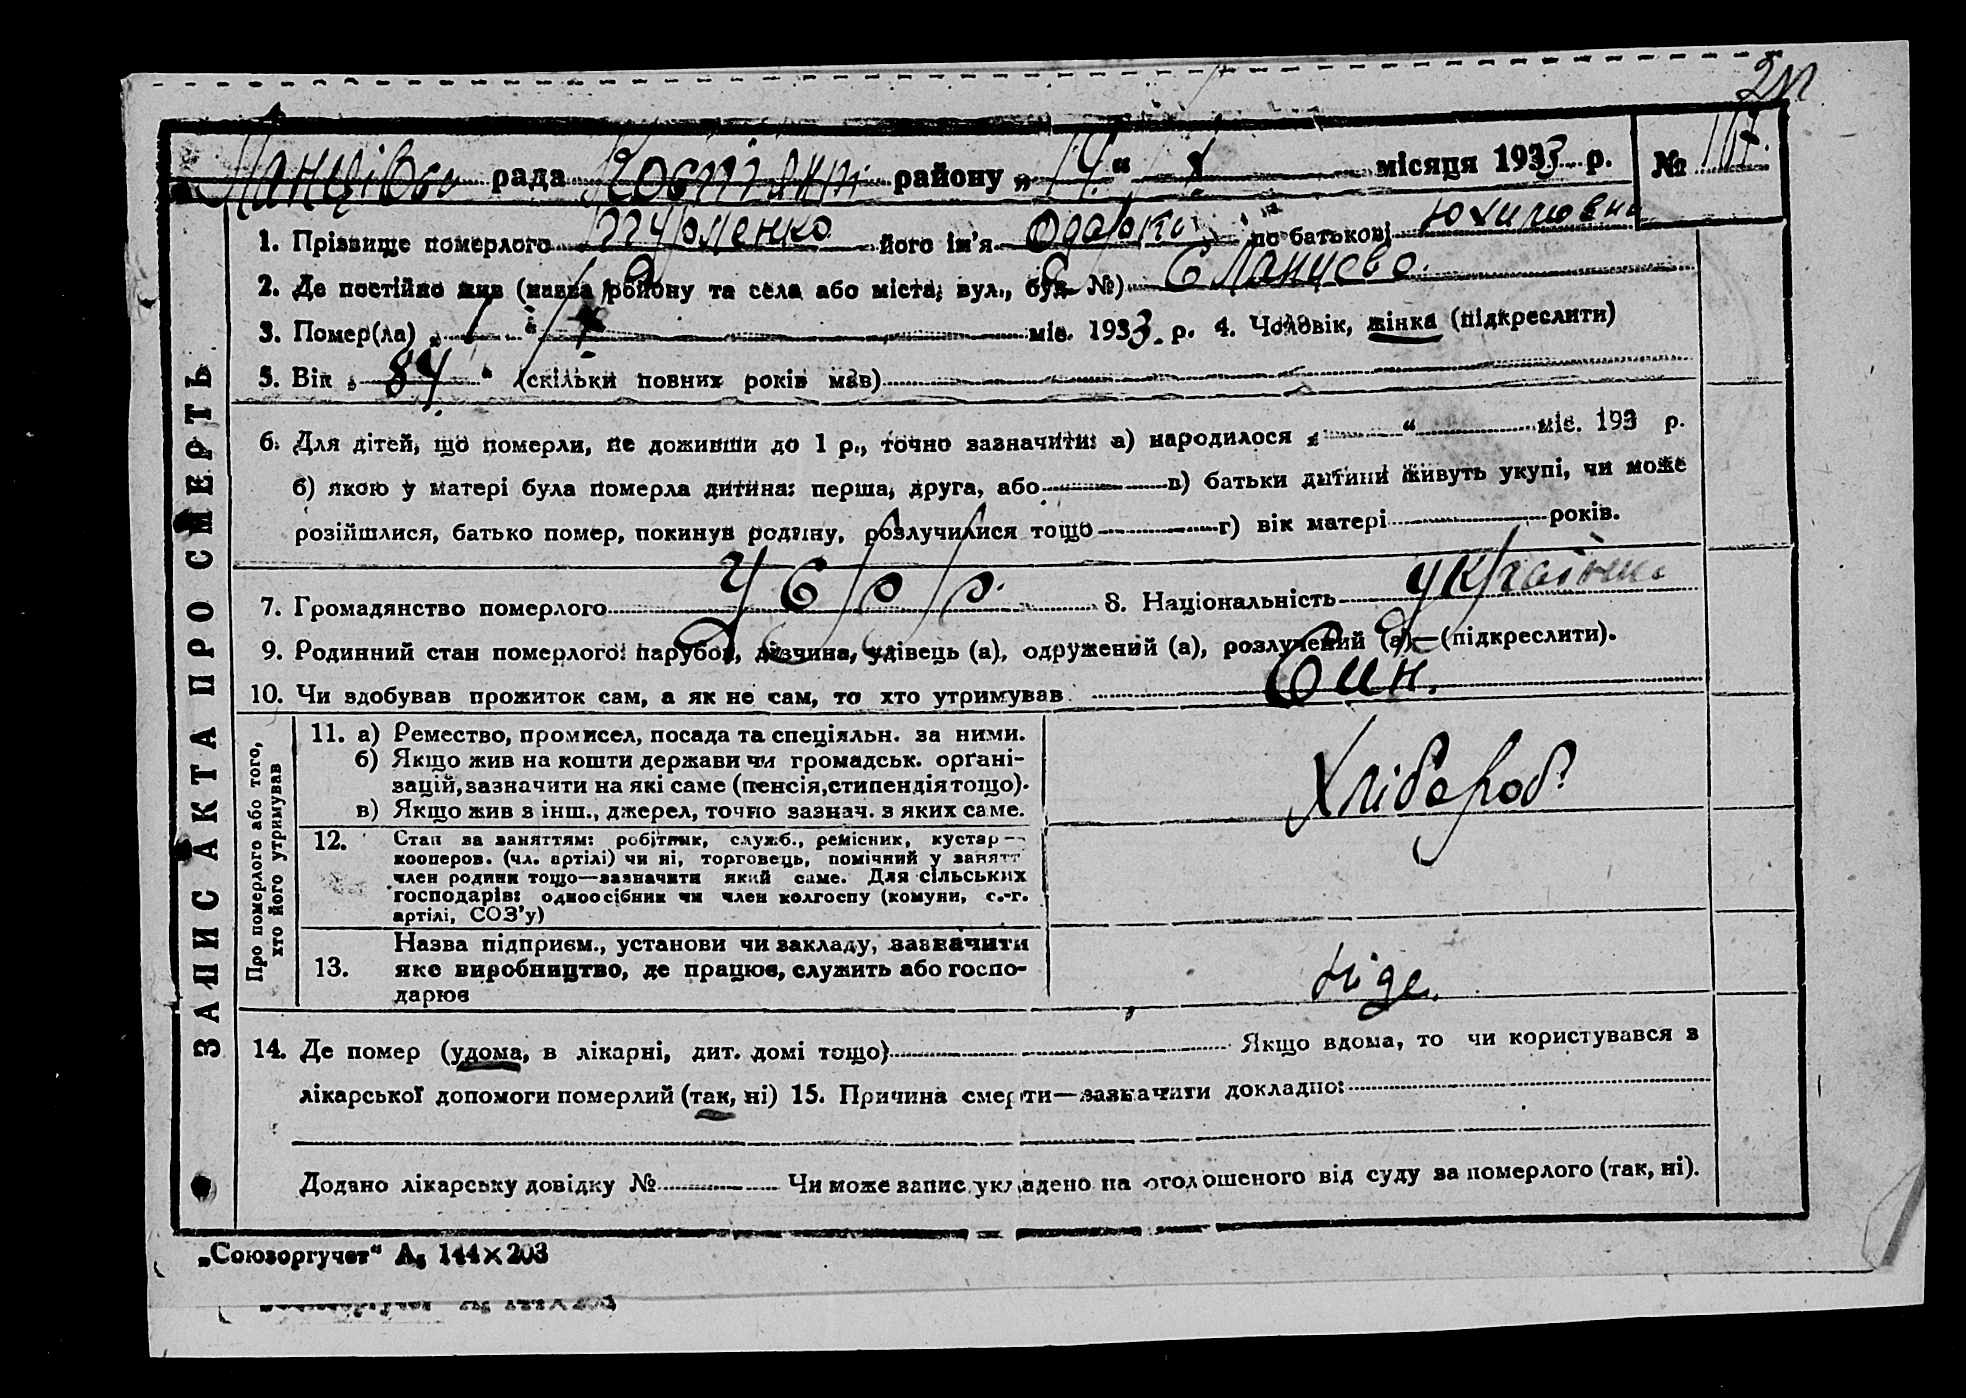 рада району „14“ місяця 1933 р. №
1. Прізвище померлого його ім'я Одарка по батькові Юхимовна
2. Де постійно жив (назва району та села або міста, вул., буд. №) с Ланцево
3. Помер(ла) „ “ міс. 1933. р. 4. Чоловік, жінка (підкреслити)
5. Вік „ 84 “ (скільки повних років мав)
6. Для дітей, що померли, не доживши до 1 р., точно зазначити: а) народилося „ “ міс. 193 р.
б) якою у матері була померла дитина: перша, друга, або в) батьки дитини живуть укупі, чи може
розійшлися, батько помер, покинув родину, розлучилися тощо г) вік матері років.
7. Громадянство померлого УСРР. 8. Національність українка
9. Родинний стан померлого: парубок, дівчина, удівець (а), одружений (а), розлучений (а)—(підкреслити).
10. Чи здобував прожиток сам, а як не сам, то хто утримував Син.
ЗАПИС АКТА ПРО СМЕРТЬ
Про померлого або того,
хто його утримував
11. а) Ремество, промисел, посада та спеціяльн. за ними.
б) Якщо жив на кошти держави чи громадськ. органі-
зацій, зазначити на які саме (пенсія, стипендія тощо).
в) Якщо жив з інш., джерел, точно зазнач. з яких саме.
Хлібороб.
12. Стан за заняттям: робітник, служб., ремісник, кустар—
кооперов. (чл. артілі) чи ні, торговець, помічний у занятт
член родини тощо—зазначити який саме. Для сільських
господарів: одноосібник чи член колгоспу (комуни, с.-г.
артілі, СОЗ'у)
Назва підприєм., установи чи закладу, зазначити
13. яке виробництво, де працює, служить або госпо-
дарює
ніде.
14. Де помер (удома, в лікарні, дит. домі тощо) Якщо вдома, то чи користувався з
лікарської допомоги померлий (так, ні) 15. Причина смерти—зазначити докладно:
Додано лікарську довідку № Чи може запис укладено на оголошеного від суду за померлого (так, ні).
„Союзоргучет“ А5 144×203